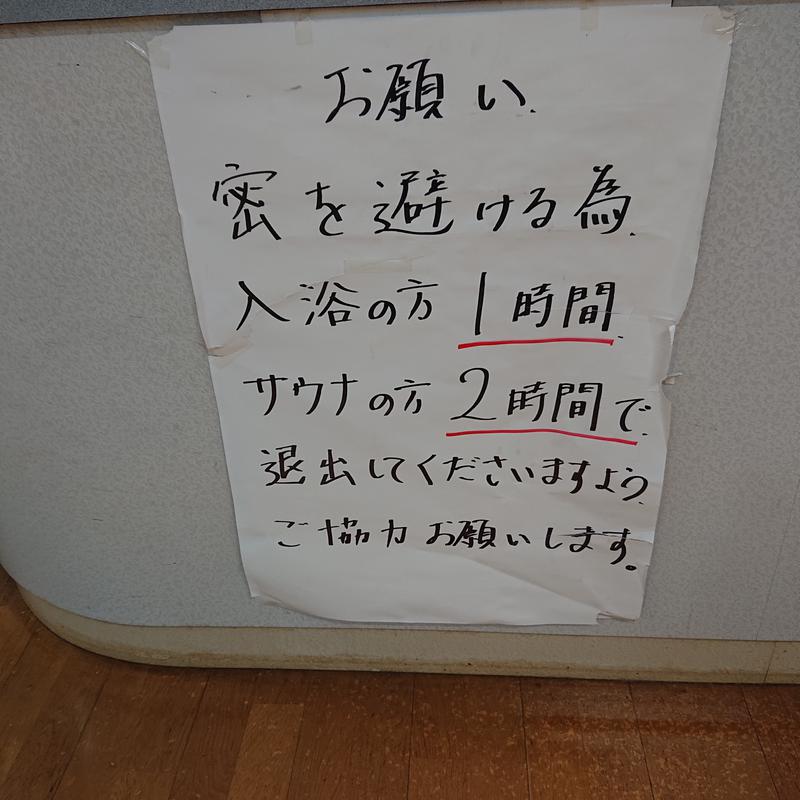 お願い
密を避ける為
入浴の方 1時間
サウナの方 2時間で
退出してくださいますよう
ご協力お願いします。